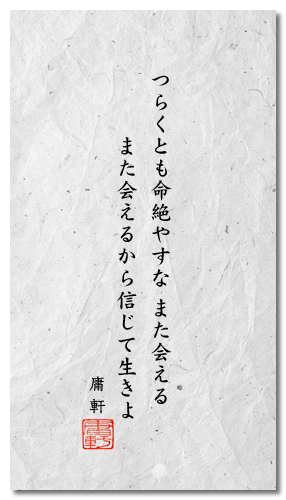 つらくとも命絶やすな また会える
また会えるから信じて生きよ
庸軒